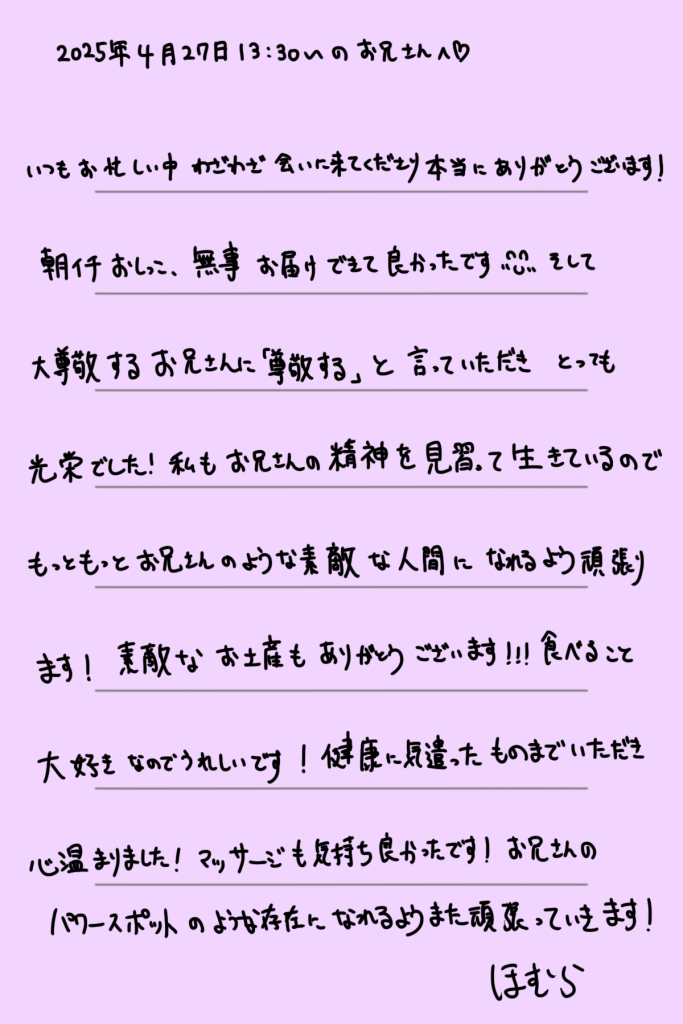 2025年4月27日13:30〜のお兄さんへ♡
いつもお忙しい中 わざわざ 会いに来てくださり 本当に ありがとう ございます!
朝イチ おしっこ、無事 お届け できて 良かったです そして
大尊敬する お兄さんに「尊敬する」と 言っていただき とっても
光栄でした! 私も お兄さんの 精神を 見習って 生きているので
もっともっと お兄さんのような 素敵 な人間に なれるよう 頑張り
ます! 素敵な お土産も ありがとう ございます!!! 食べること
大好き なので うれしいです! 健康に気遣った ものまで いただき
心温まりました! マッサージも 気持ち良かったです! お兄さんの
パワースポット のような存在に なれるよう また 頑張っていきます!
ほむら